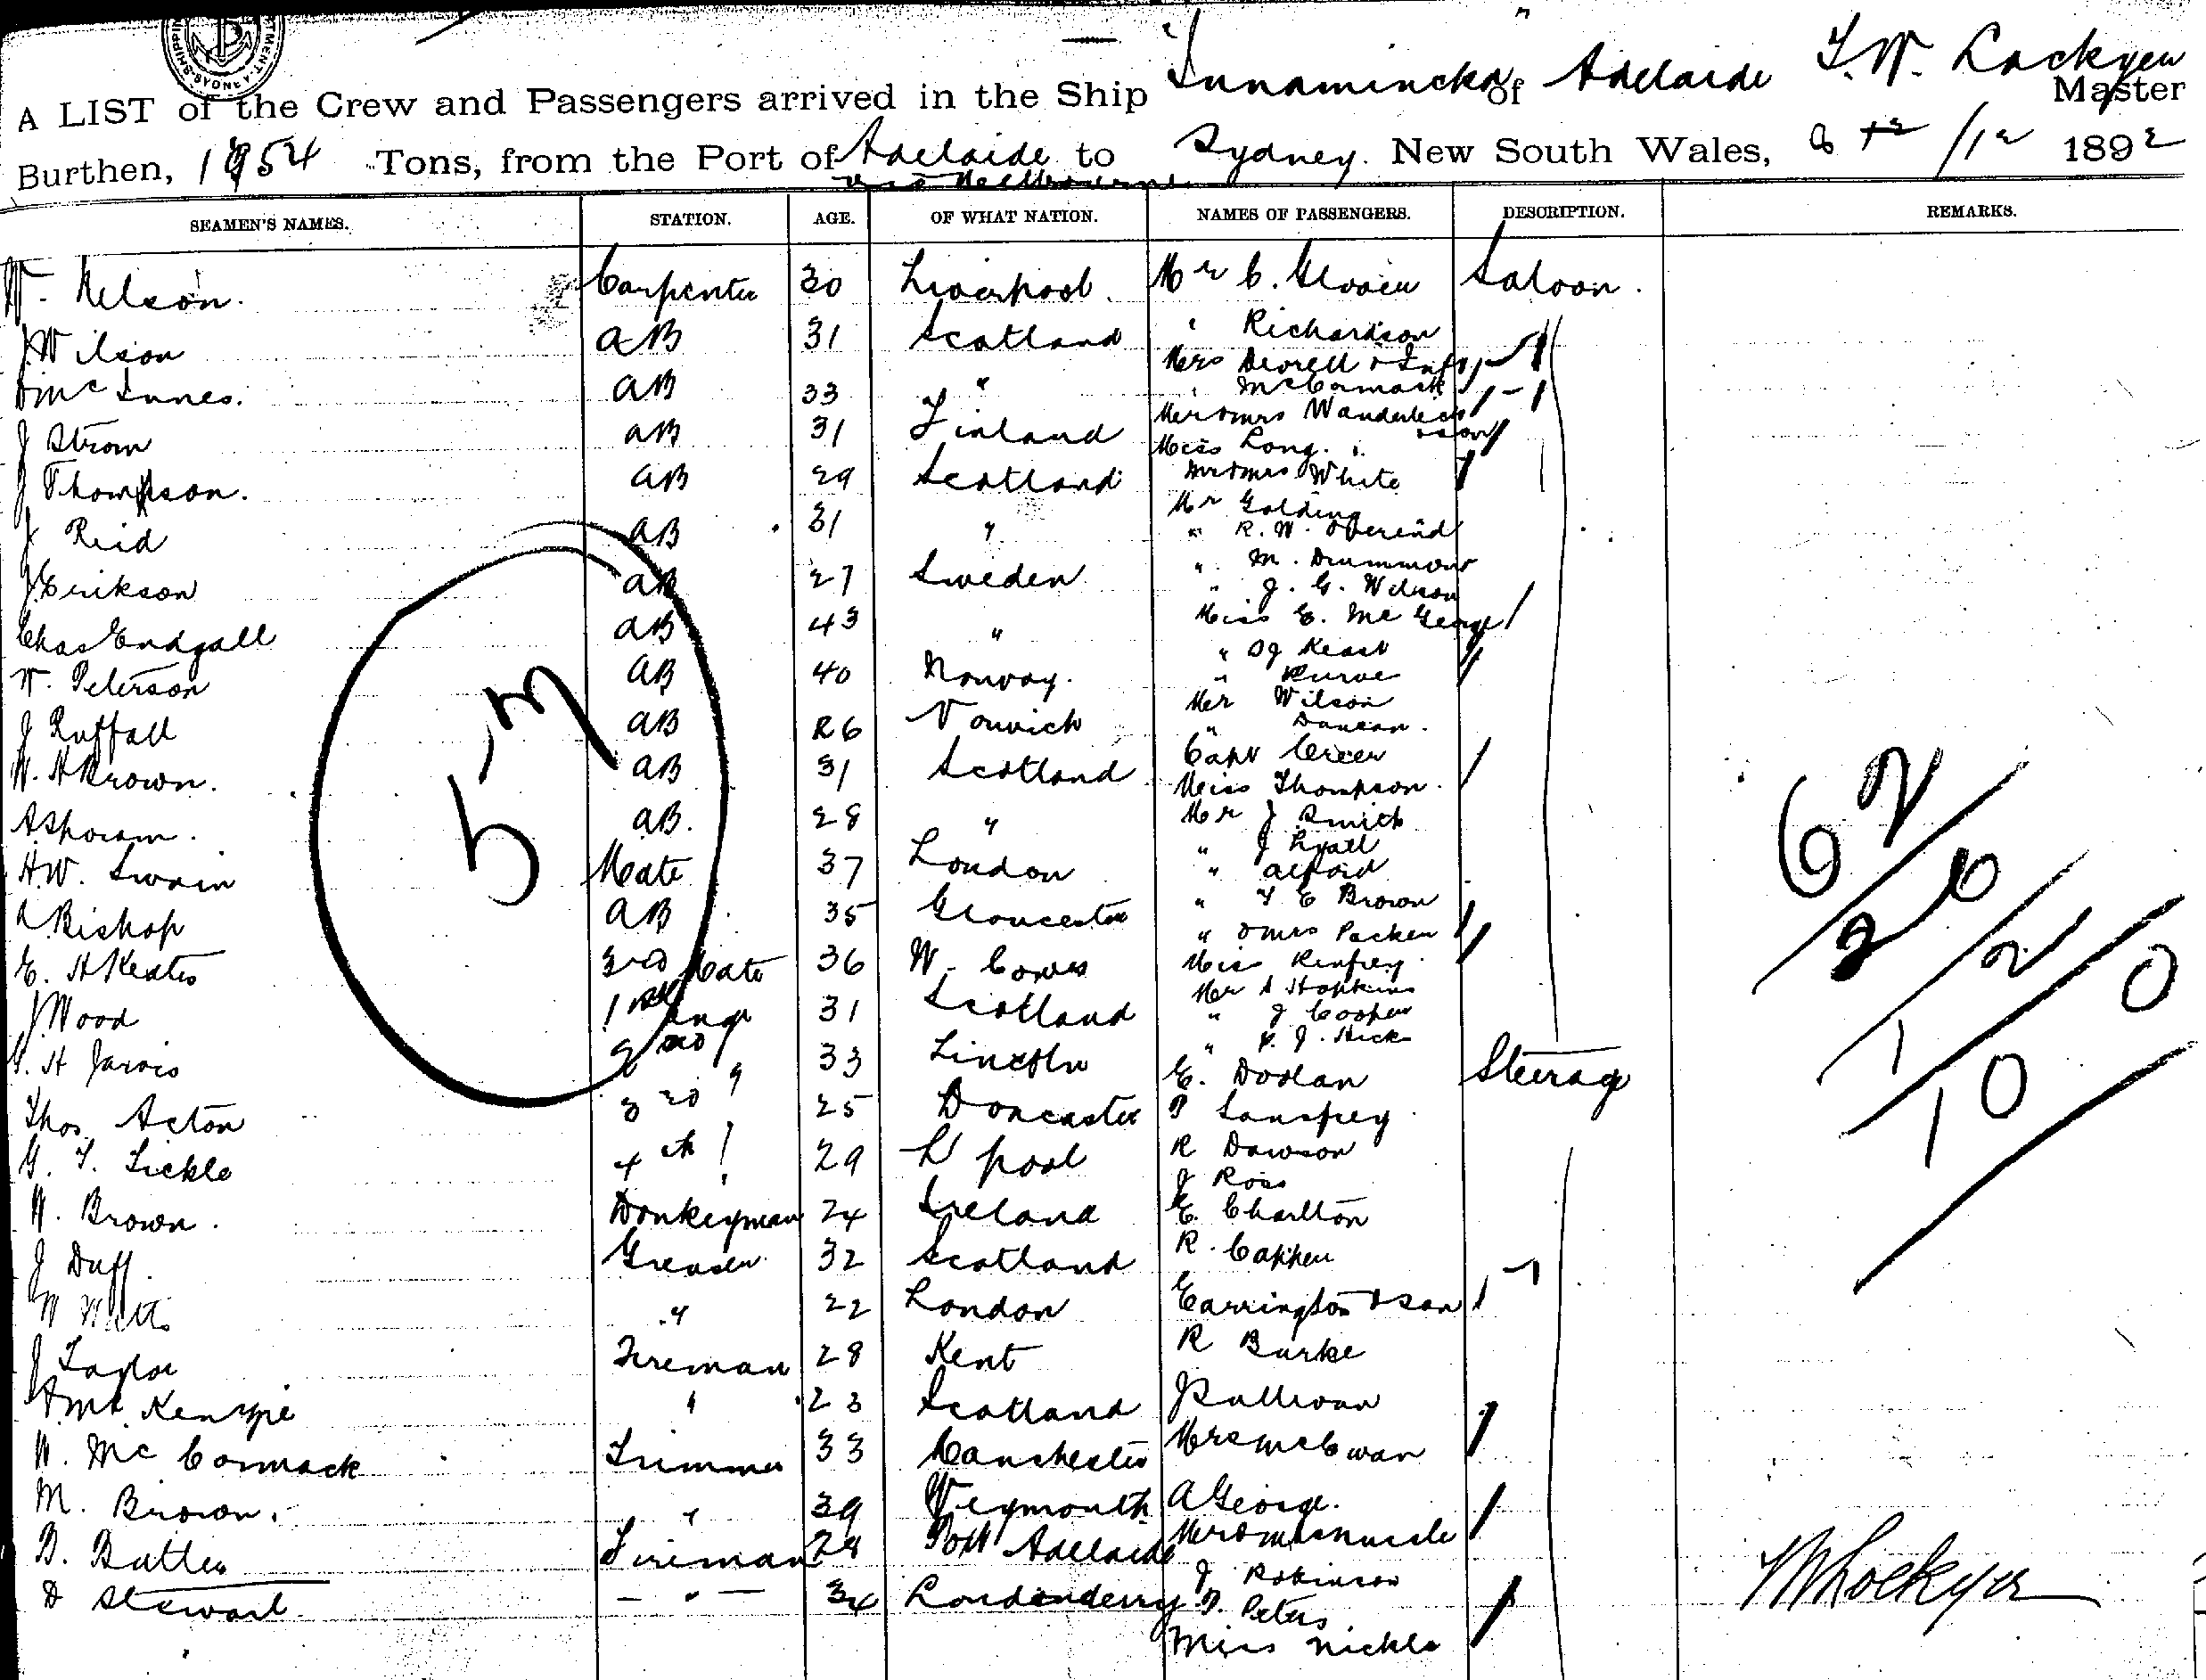 "Innamincka" of Adelaide T. W. Lockyer
A LIST of the Crew and Passengers arrived in the Ship Master
Burthen, 1954 Tons, from the Port of Adelaide to Sydney. New South Wales, 8th /12 1892
via Melbourne
SEAMEN'S NAMES. STATION. AGE. OF WHAT NATION. NAMES OF PASSENGERS. DESCRIPTION. REMARKS.
W. Nelson. Carpenter 30 Liverpool. Mr C. Glover Saloon.
J Wilson AB 31 Scotland " Richardson
Mrs & Inft
D McInnes. AB 33 " " McCormack
J Strom AB 31 Finland Mr & Mrs
Miss Long.
J Thompson. AB 29 Scotland Mr & Mrs White
Mr Golding
J Reid AB 31 " " R. W. Overend
" M. Drummond
J Erikson AB 27 Sweden " J. G. Wilson
Chas Endgall AB 43 " Miss E. McGeorge
" Keast
W. Peterson AB 40 Norway. " Purve
Mr Wilson
J Ruffall AB 26 Norwich " Duncan.
W. H Brown. AB 31 Scotland Capt Creer
Miss Thompson.
AB. 28 " Mr J Smith
" J Lyall
H.W. Swain Mate 37 London " Alford
A Bishop AB 35 Gloucester " T E Brown
" & Mrs Packer
E. H Keates 3rd Mate 36 W. Cowes Miss Renfrey.
J Wood 1st Engr 31 Scotland Mr A Hopkins
" J Cooper
" J. Hick
G. H Jarvis 2nd " 33 Lincoln E. Doolan Steerage
Thos Acton 3rd " 25 Doncaster P Lansfrey
G. T. Lickle 4th " 29 L'pool R Dawson
J Ross
W. Brown. Donkeyman 24 Ireland E. Charlton
J Duff. Greaser 32 Scotland R. Capper
W Watts " 22 London Carrington & Son
J Taylor Fireman 28 Kent R Burke
A McKenzie " 23 Scotland J Sullivan
W. McCormack Trimmer 33 Manchester Mrs McEwan
M. Brown. " 39 Weymouth A George.
B. Butler Fireman 28 Port Adelaide Mr & Mrs
J Robinson
D Stewart. " 34 Londonderry P. Peters
Miss Nickls
5-3
62
26
12
10
10
TW Lockyer